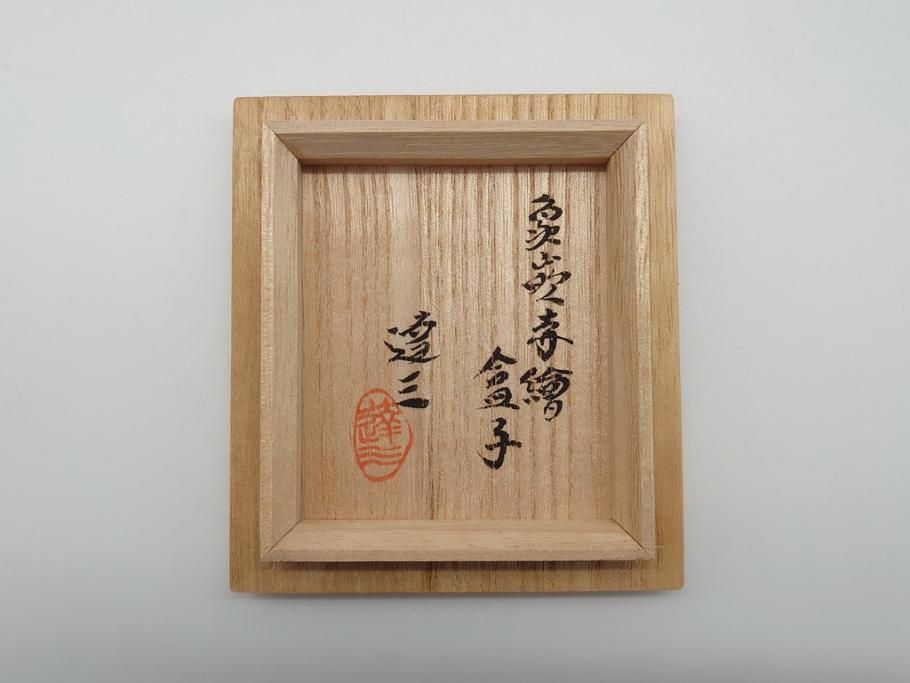 象嵌赤繪
盒子
達三
達三